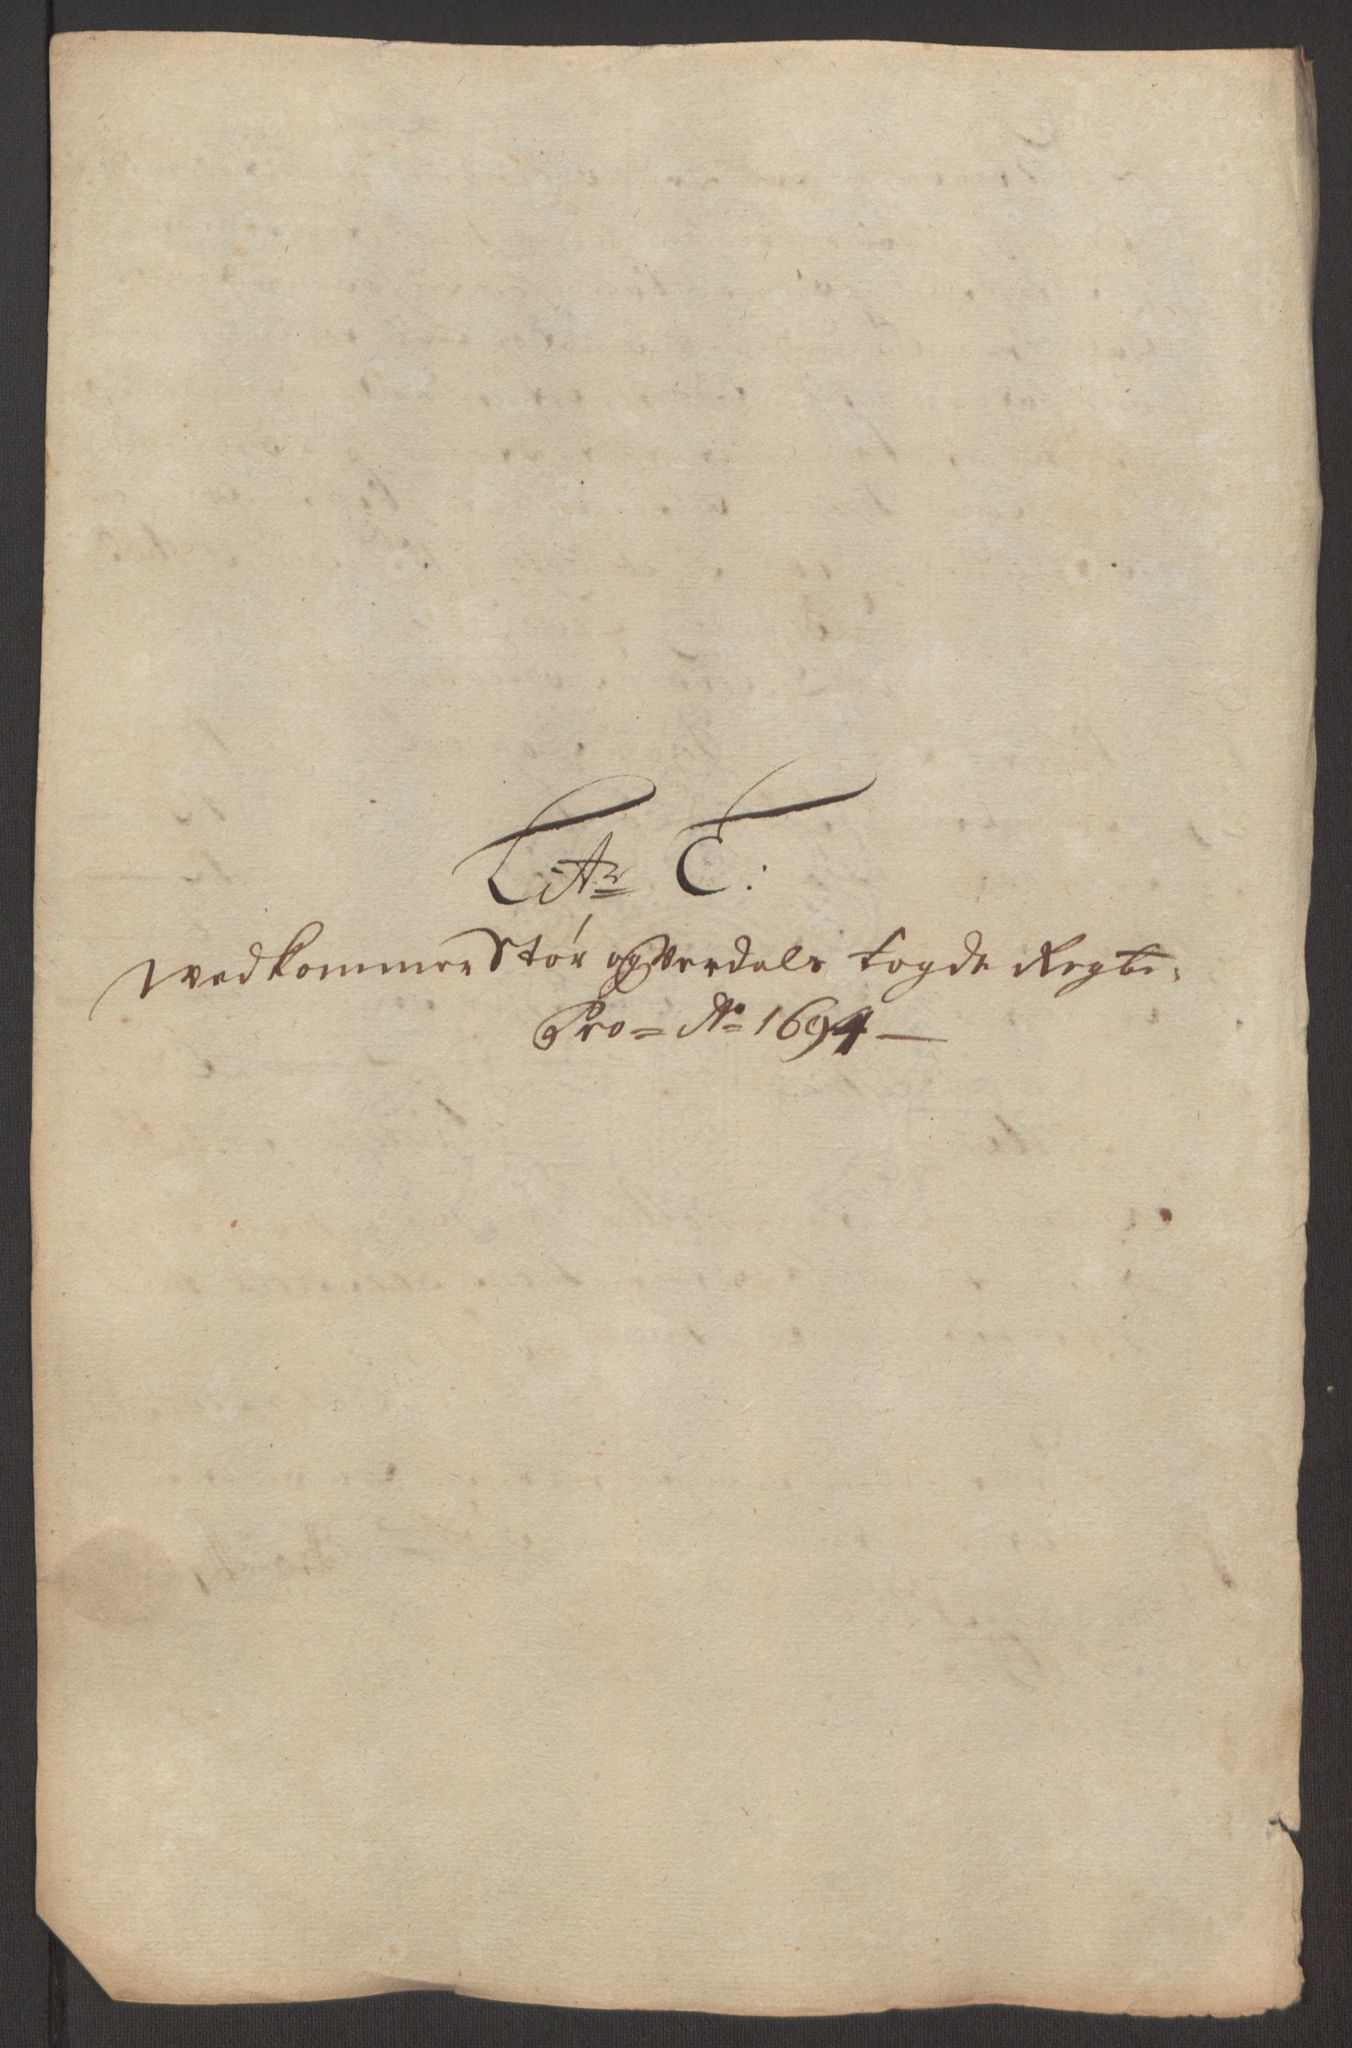 Litr E:
Vedkommer Stør og Verdals fogde Regtr:
Pro Ao 1694